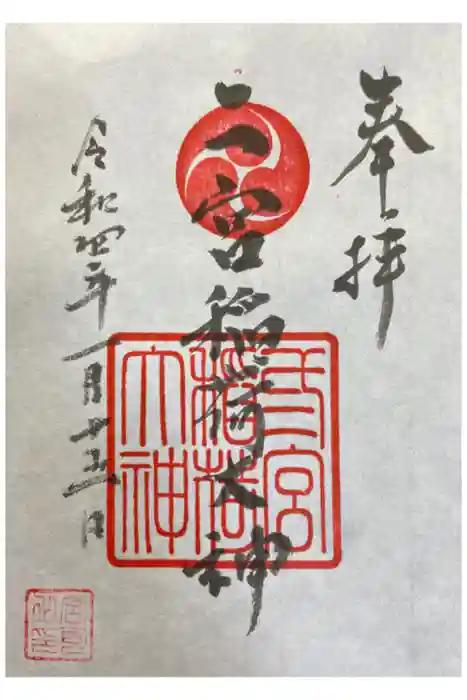 奉拝
二宮稲荷大神
令和四年一月十五日
稲荷
大神